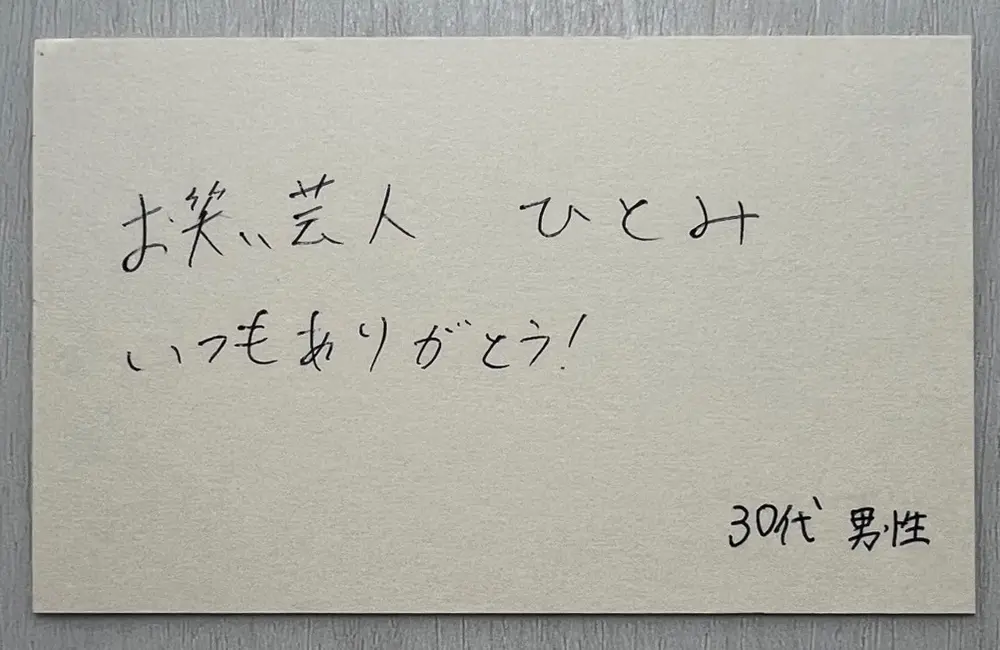 お笑い芸人　ひとみ
いつもありがとう!
30代 男性